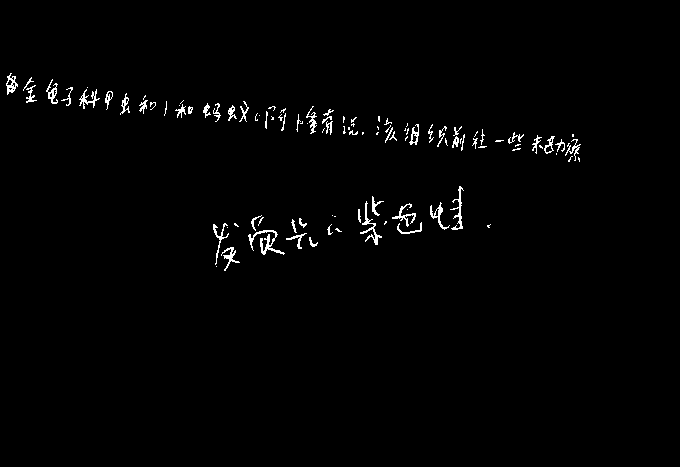 金龟子科甲虫和1和蚂蚁。阿隆有说,该组织前往一些未勘察
发员光的紫色蛙.